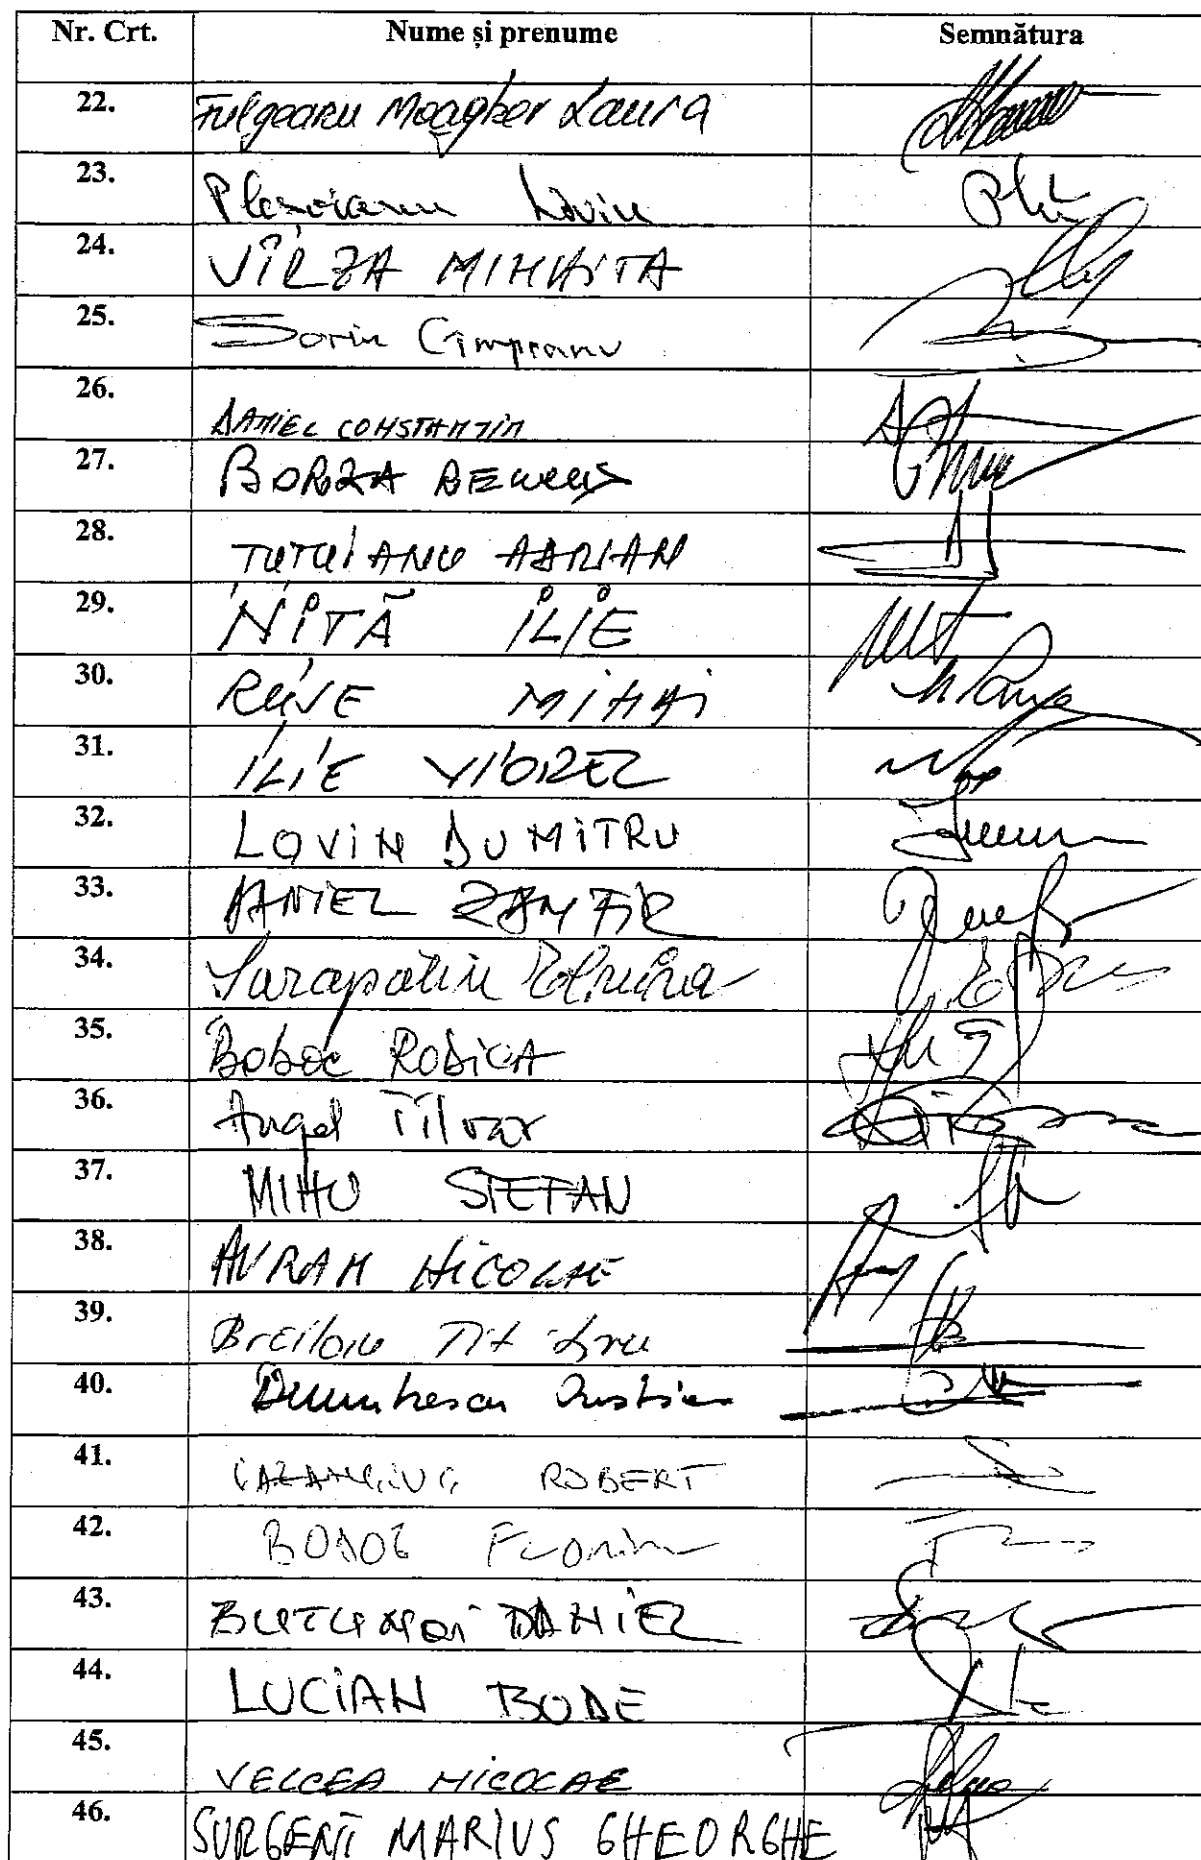 Nr. Crt. Nume și prenume Semnătura
22. Fulgeanu Moagher Laura
23. Plesoianu Liviu
24. VÎRZA MIHĂIȚA
25. Sorin Cîmpeanu
26. DANIEL CONSTANTIN
27. BORZA REMUS
28. TUȚUIANU ADRIAN
29. NIȚĂ ILIE
30. RUSE MIHAI
31. ILIE VIOREL
32. LOVIN DUMITRU
33. DANIEL ZAMFIR
34. Sarapatin Elvira
35. Boboc RODICA
36. Angel Tîlvar
37. MIHU STEFAN
38. AVRAM NICOLAE
39. Brăiloiu Tit Liviu
40. Dumitrescu Cristian
41. CAZANCIUC ROBERT
42. BODOG Florian
43. BUTUNOI DANIEL
44. LUCIAN BODE
45. VELCEA NICOLAE
46. SURGENT MARIUS GHEORGHE